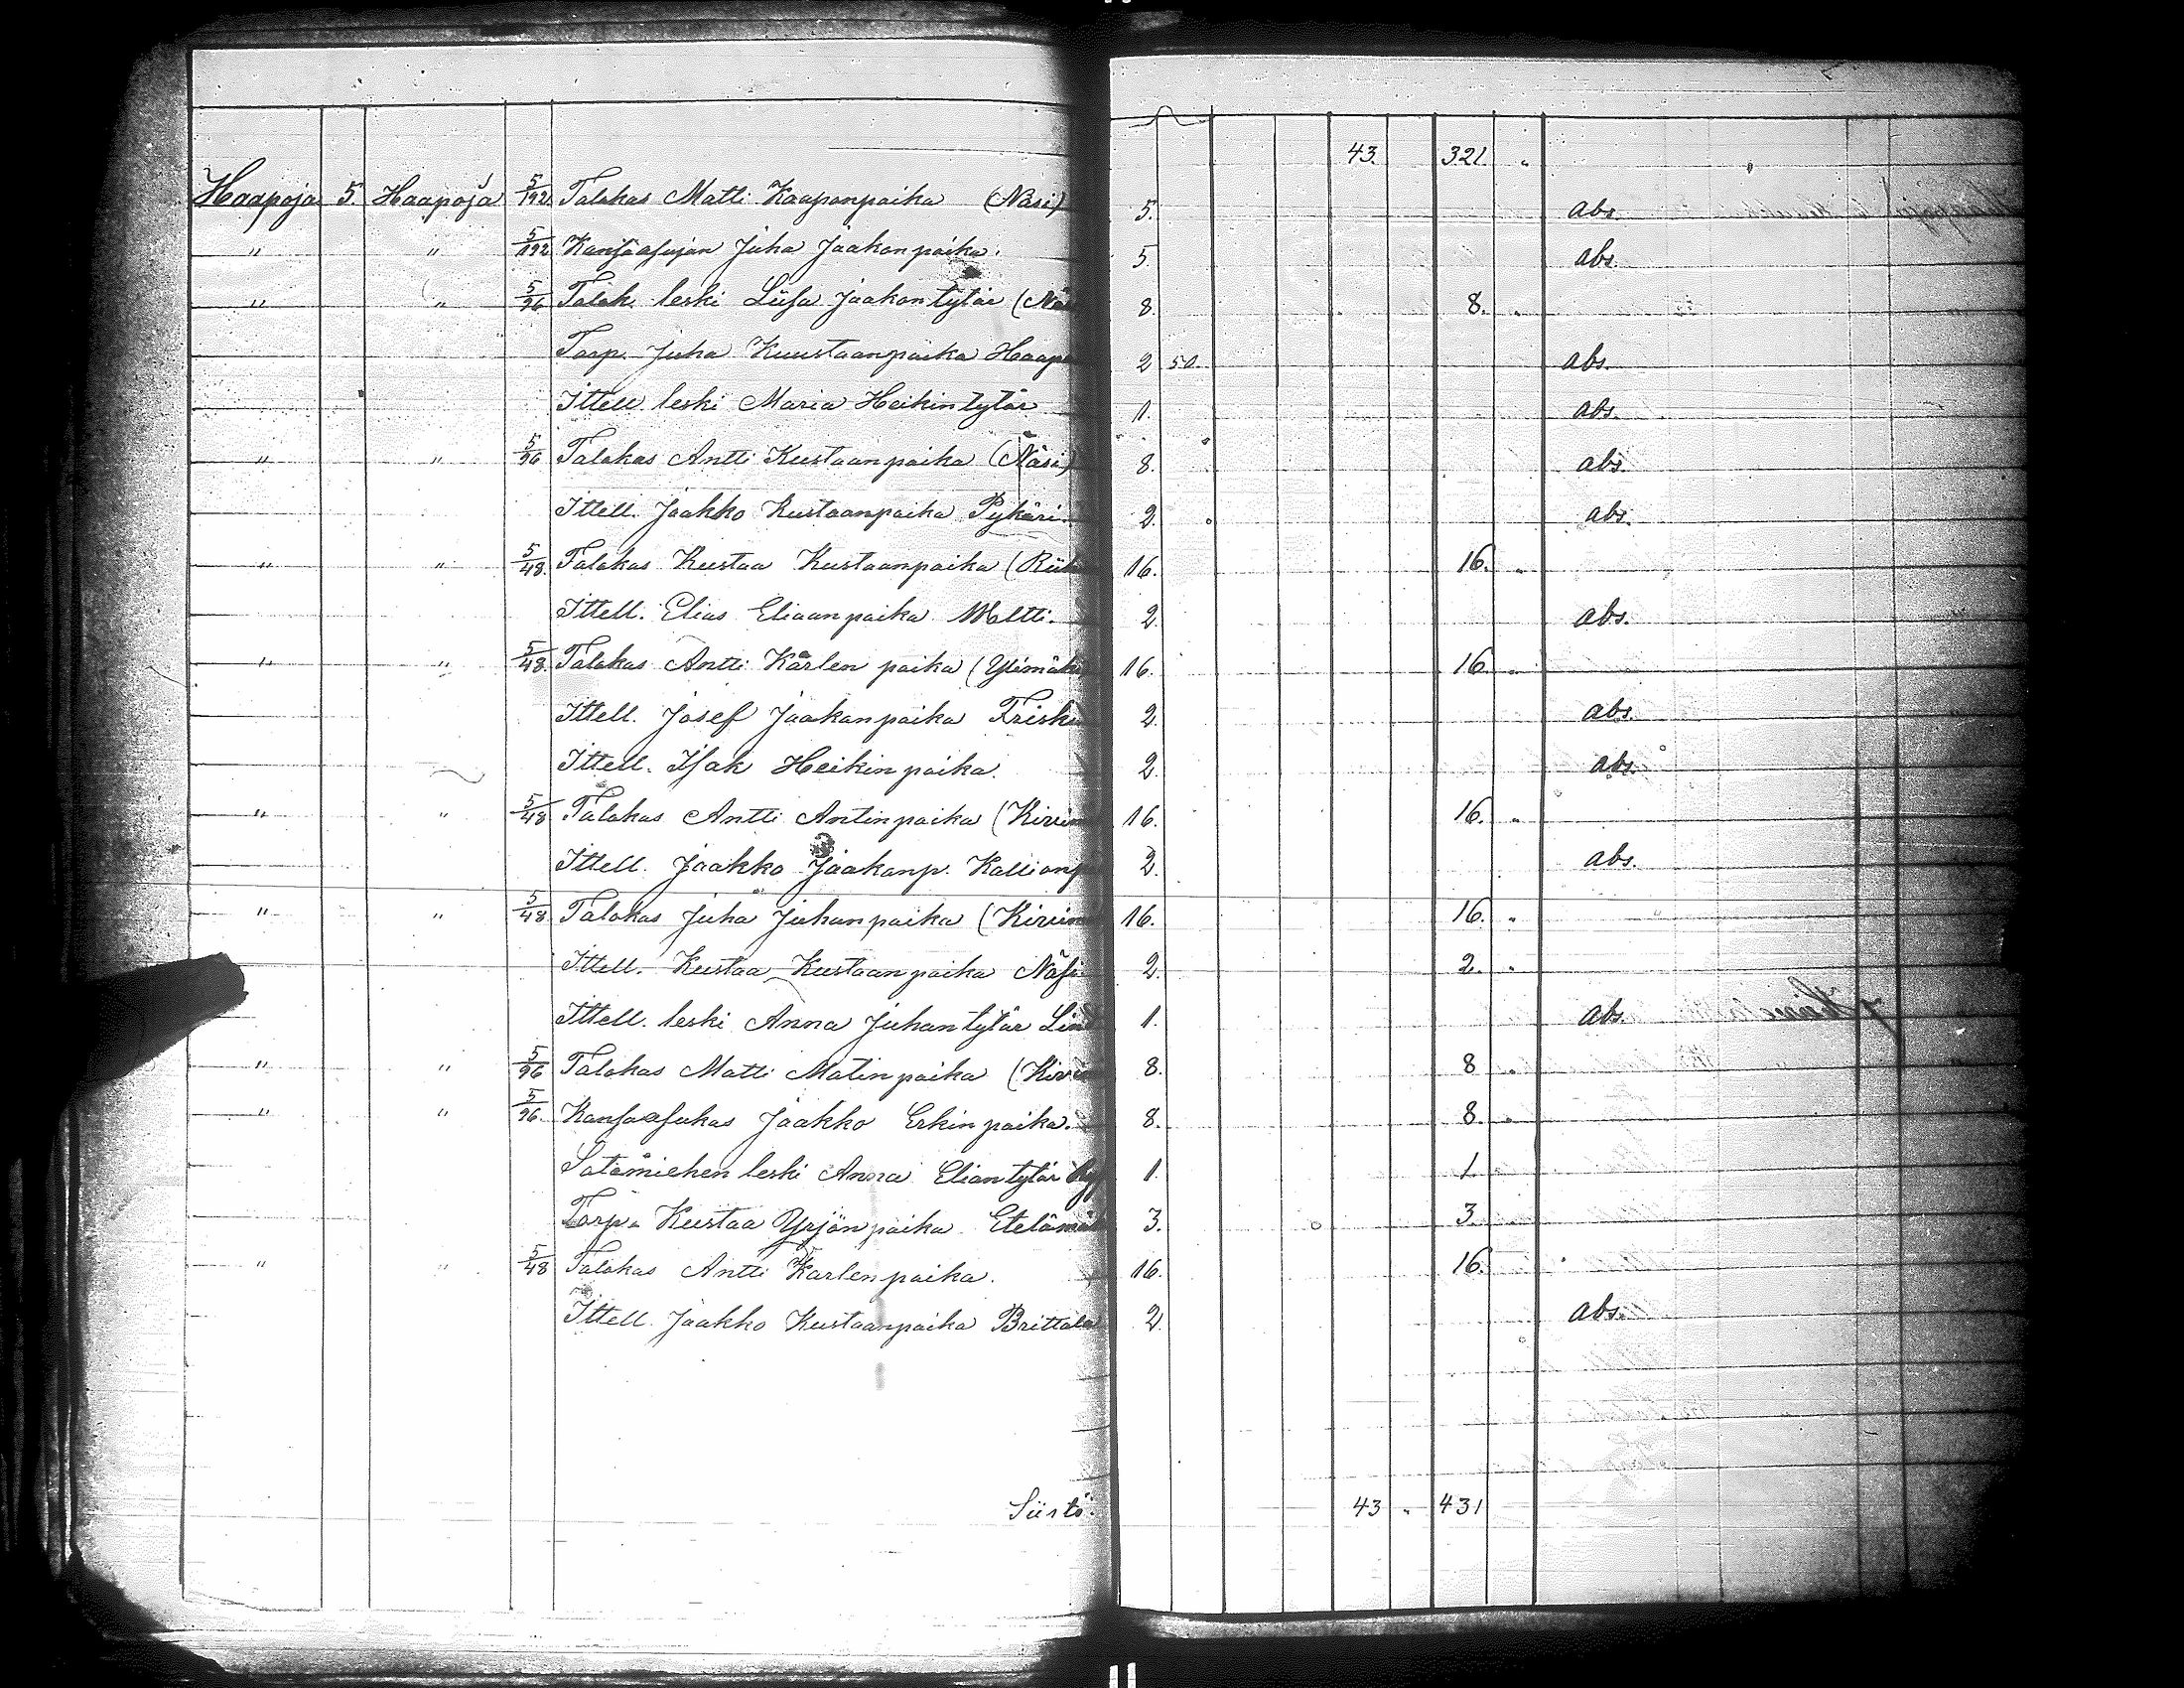 43. 321. "
Haapoja 5. Haapoja 5/192 Talokas Matti Kaapanpoika (Näsi) 5. abs.
" " 5/192 Kansaasujan Juha Jaakonpoika. 5. abs.
" " 5/96 Talok. leski Liisa Jaakontytär (Nä 8. 8. "
Torp. Juha Kuustaanpoika Haapo 2 50. abs.
Ittell. leski Maria Heikintytär 1. abs.
" " 5/96 Talokas Antti Kustaanpoika (Näsi) 8. abs.
Ittell. Jaakko Kustaanpoika Pykäri. 2. abs.
" " 5/48. Talokas Kustaa Kustaanpoika (Rii 16. 16. "
Ittell. Elias Eliaanpoika Meltti. 2. abs.
" " 5/48. Talokas Antti Kårlen poika (Ylimäki 16. 16. "
Ittell. Josef Jaakanpoika Frisk 2. abs.
Ittell. Isak Heikinpoika. 2. abs.
" " 5/48 Talokas Antti Antinpoika (Kivin 16. 16. "
Ittell. Jaakko Jaakonp. Kallionp 2. abs.
" " 5/48 Talokas Juha Juhanpoika (Kivin 16. 16. "
Ittell. Kustaa Kustaanpoika Näsi 2. 2. "
Ittell. leski Anna Juhantytär Lin 1. abs.
" " 5/96 Talokas Matti Matinpoika (Kivi 8. 8 "
" " 5/96. Kansaasukas Jaakko Erkinpoika. 8. 8. "
Sotamiehen leski Anna Eliantytär 1. 1.
Torp. Kustaa Yrjönpoika Etelämä 3. 3.
" " 5/48 Talokas Antti Karlenpoika. 16. 16.
Ittell. Jaakko Kustaanpoika Brittala 2. abs.
Siirto: 43 " 431